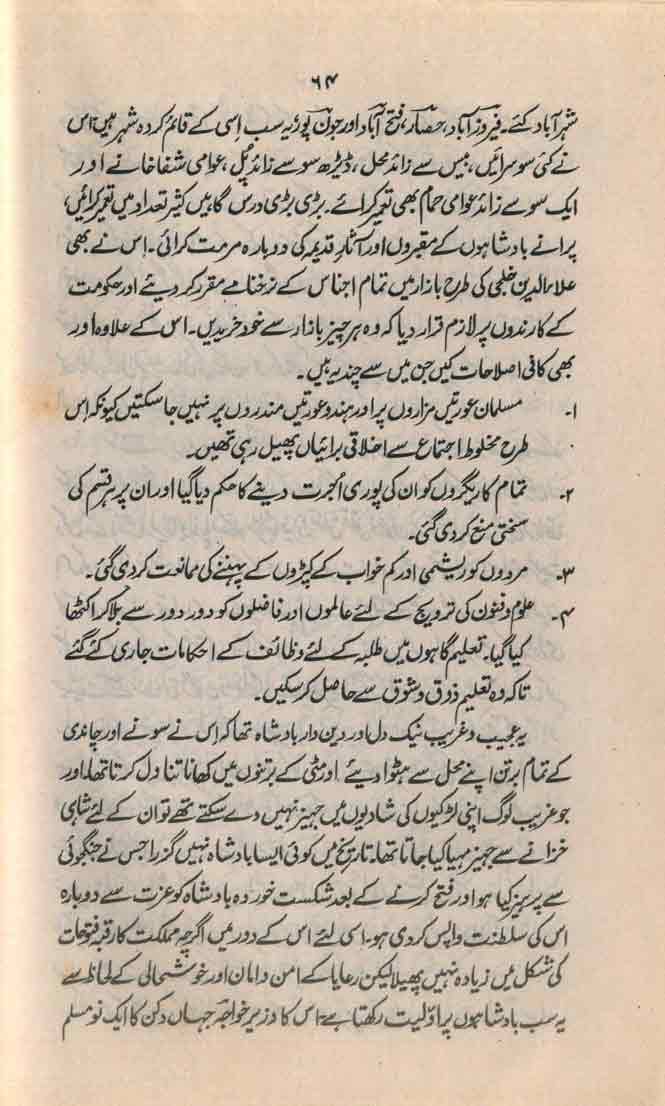 ۶۴
شہر آباد کئے۔ فیروز آباد، حصار، فتح آباد اور جون پور یہ سب اسی کے قائم کردہ شہر ہیں اس
نے کئی سو سرائیں، بیس سے زائد محل، ڈیڑھ سو سے زائد پُل، عوامی شفا خانے اور
ایک سو سے زائد عوامی حمام بھی تعمیر کرائے۔ بڑی بڑی درس گاہیں کثیر تعداد میں تعمیر کرائیں،
پرانے بادشاہوں کے مقبروں اور آثارِ قدیمہ کی دوبارہ مرمت کرائی۔ اس نے بھی
علاءالدین خلجی کی طرح بازار میں تمام اجناس کے نرخنامے مقرر کر دیئے اور حکومت
کے کارندوں پر لازم قرار دیا کہ وہ ہر چیز بازار سے خود خریدیں۔ اس کے علاوہ اور
بھی کافی اصلاحات کیں جن میں سے چند یہ ہیں۔
۱۔ مسلمان عورتیں مزاروں پر اور ہندو عورتیں مندروں پر نہیں جا سکتیں کیونکہ اس
طرح مخلوط اجتماع سے اخلاقی برائیاں پھیل رہی تھیں۔
۲۔ تمام کاریگروں کو ان کی پوری اُجرت دینے کا حکم دیا گیا اور ان پر ہر قسم کی
سختی منع کر دی گئی۔
۳۔ مردوں کو ریشمی اور کم خواب کے کپڑوں کے پہننے کی ممانعت کر دی گئی۔
۴۔ علوم و فنون کی ترویج کے لئے عالموں اور فاضلوں کو دور دور سے بلا کر اکٹھا
کیا گیا۔ تعلیم گاہوں میں طلبہ کے لئے وظائف کے احکامات جاری کئے گئے
تاکہ وہ تعلیم ذوق و شوق سے حاصل کر سکیں۔
یہ عجیب و غریب نیک دل اور دین دار بادشاہ تھا کہ اس نے سونے اور چاندی
کے تمام برتن اپنے محل سے ہٹوا دیئے اور مٹی کے برتنوں میں کھانا تناول کرتا تھا۔ اور
جو غریب لوگ اپنی لڑکیوں کی شادیوں میں جہیز نہیں دے سکتے تھے تو ان کے لئے شاہی
خزانے سے جہیز مہیا کیا جاتا تھا۔ تاریخ میں کوئی ایسا بادشاہ نہیں گزرا جس نے جنگجوئی
سے پرہیز کیا ہو اور فتح کرنے کے بعد شکست خوردہ بادشاہ کو عزت سے دوبارہ
اس کی سلطنت واپس کر دی ہو۔ اسی لئے اس کے دور میں اگرچہ مملکت کا رقبہ فتوحات
کی شکل میں زیادہ نہیں پھیلا لیکن رعایا کے امن و امان اور خوشحالی کے لحاظ سے
یہ سب بادشاہوں پر اوّلیت رکھتا ہے۔ اس کا وزیر خواجہ جہاں دکن کا ایک نو مسلم